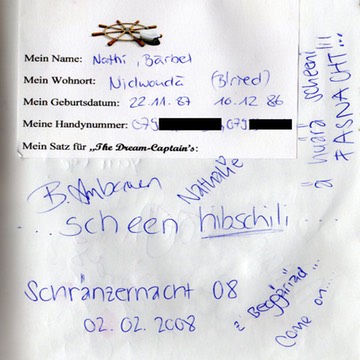 Mein Name: Nathi, Bärbel
Mein Wohnort: Nidwaudä (Blried)
Mein Geburtsdatum: 22.11.87 10.12.86
Meine Handynummer: 079 079
Mein Satz für „The Dream-Captain's:
ä huärä scheeni!!!
FASNACHT...
B. Ambauen
Nathalie
... scheen hibschili ...
Schränzernacht 08
02.02.2008
Come on...